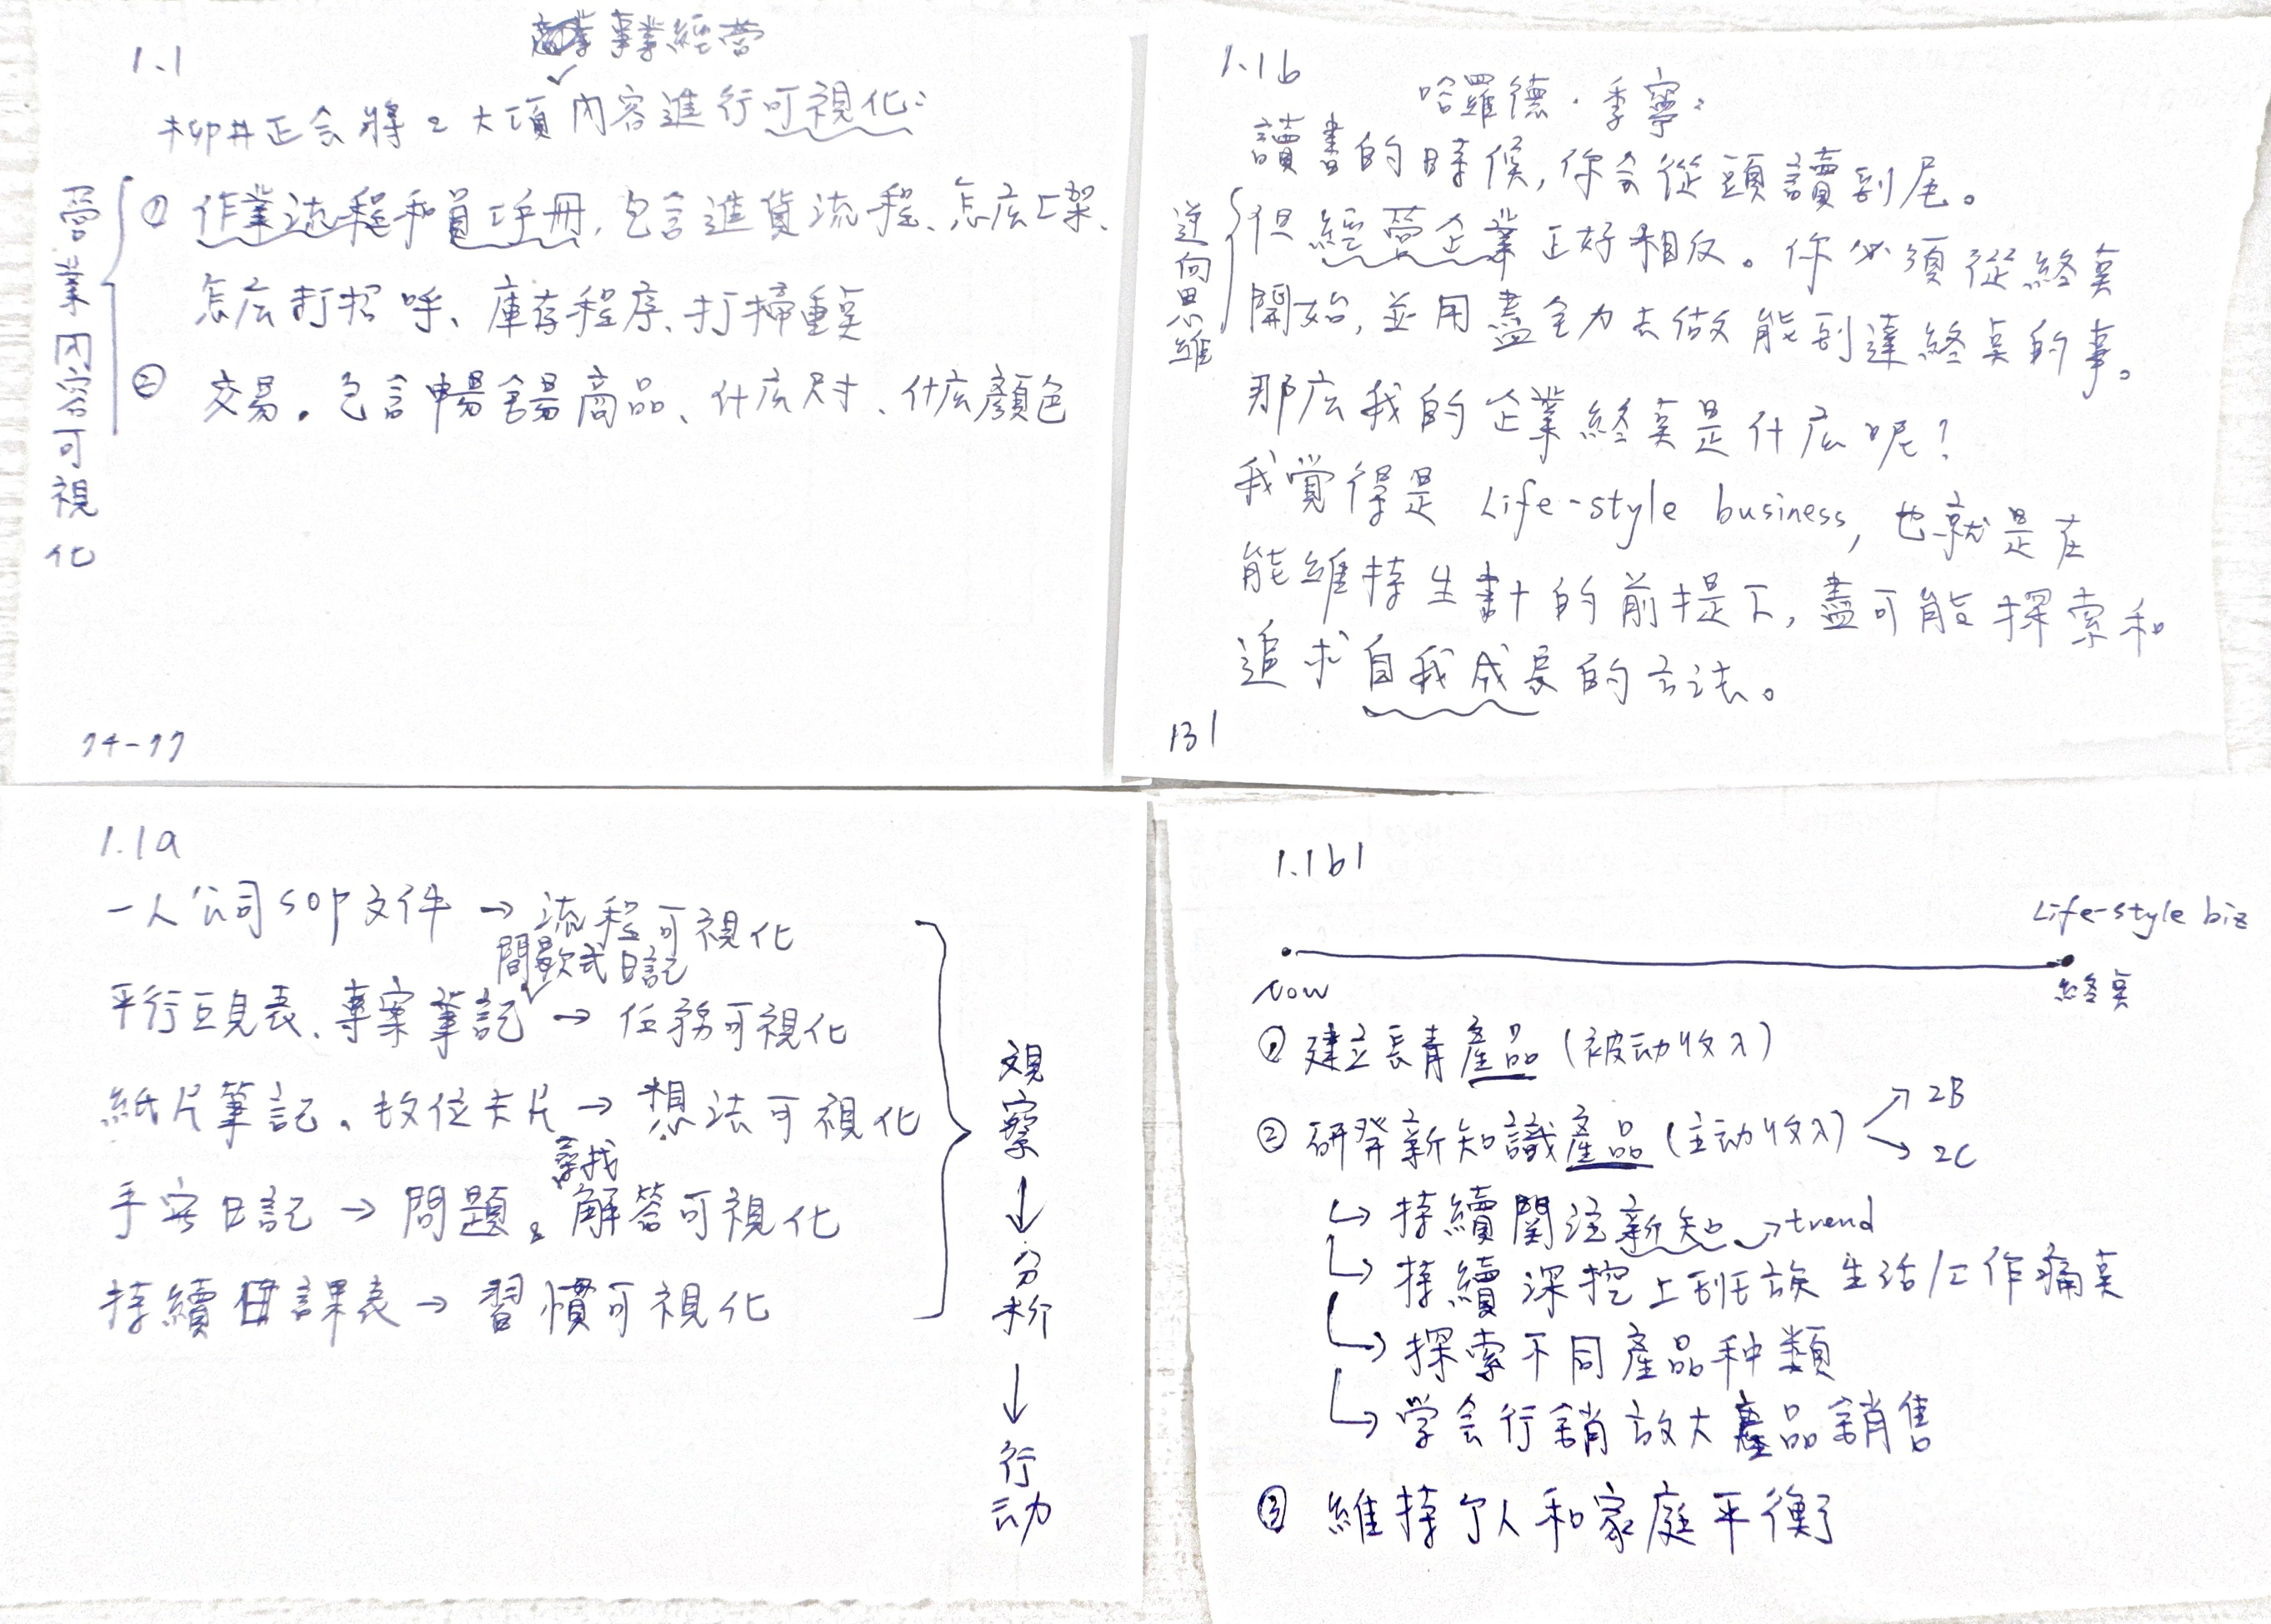 1.1
事業經营
柳井正会將2大項內容進行可視化:
營業內容可視化
① 作業流程和員工手冊, 包含進貨流程、怎広上架、
怎広打招呼、庫存程序、打掃重奌
② 交易。包含暢銷商品、什広尺寸、什広顏色
74-77
1.1b
哈羅德·季寧:
讀書的時候, 你会從頭讀到尾。
逆向思維
但經營企業正好相反。你必須從終奌
開始, 並用盡全力去做能到達終奌的事。
那広我的企業終奌是什広呢?
我覺得是 Life-style business, 也就是在
能維持生計的前提下, 盡可能探索和
追求自我成長的方法。
131
1.1a
一人公司SOP文件 → 流程可視化
間歇式日記
平行互見表、專案筆記 → 任務可視化
紙片筆記、故位卡片 → 想法可視化
尋找
手寫日記 → 問題、解答可視化
持續課表 → 習慣可視化
观察 → 分析 → 行动
1.1b1
Life-style biz
Now
終奌
① 建立長青產品 (被动收入)
② 研發新知識產品 (主动收入) → 2B
→ 2C
↳ 持續關注新知 → trend
↳ 持續深挖上班族生活/工作痛奌
↳ 探索不同產品种類
↳ 学会行銷放大產品銷售
③ 維持个人和家庭平衡